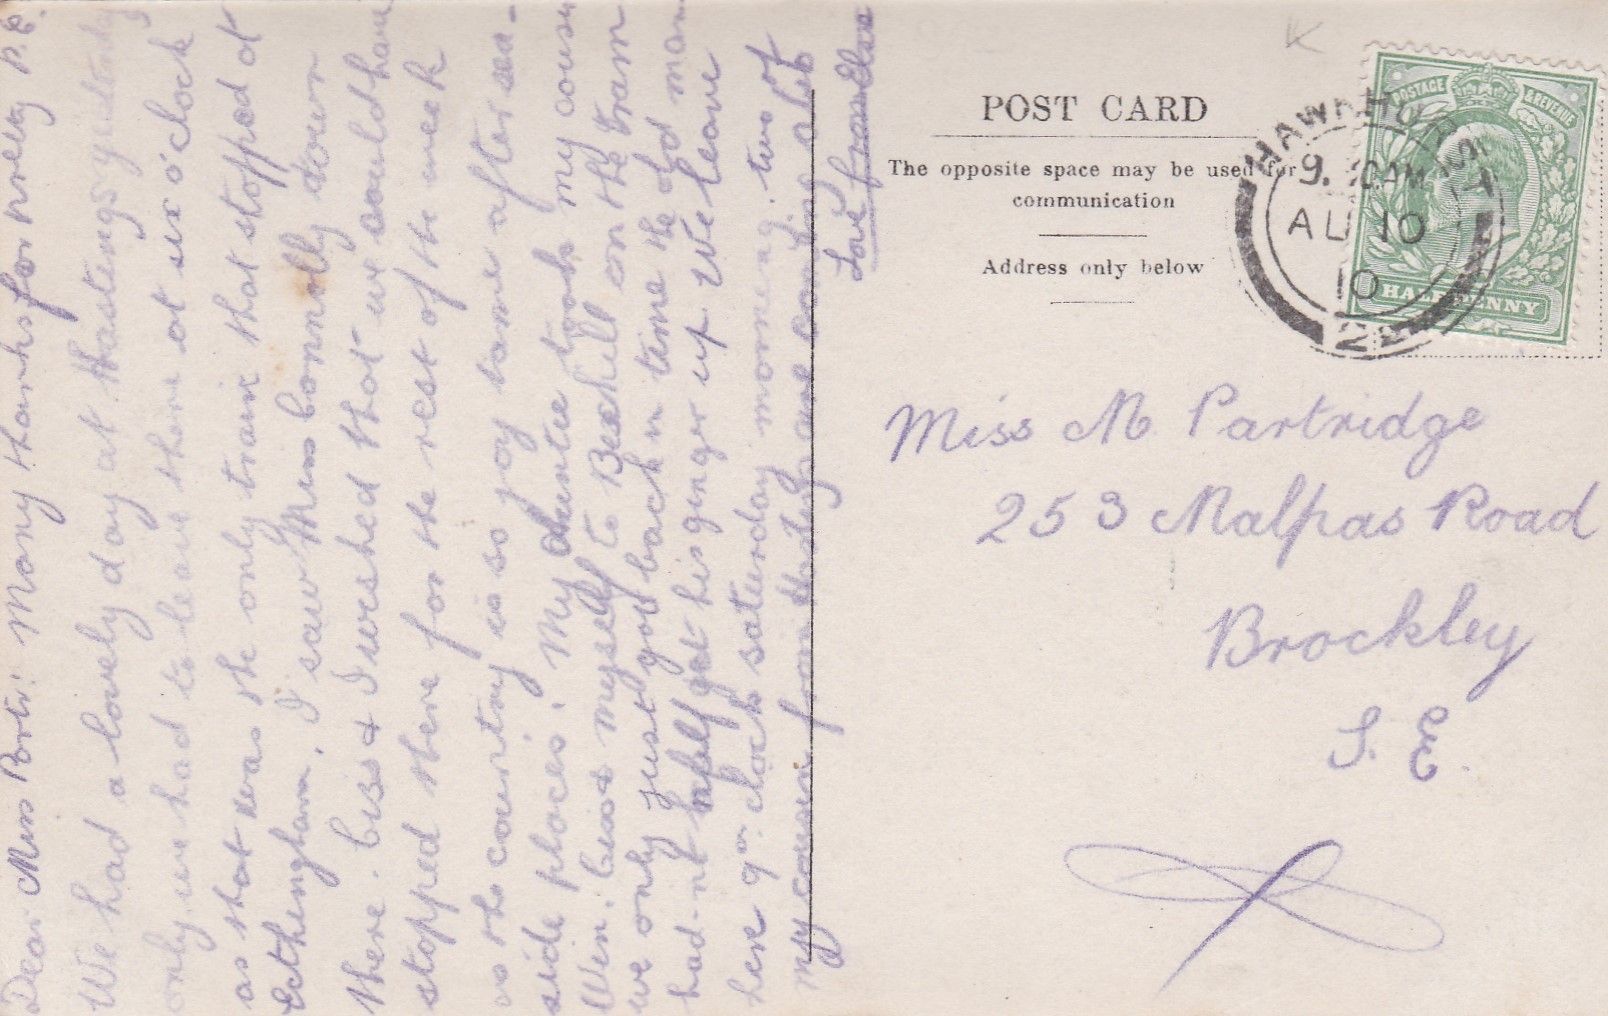 Dear Miss Partri: Many thanks for welly P.C.
We had a lovely day at Hastings yesterday
only we had to leave there at six o'clock
as that was the only train that stopped at
Etchingham. I saw Miss Bonnally down
there. Ciss & I wished that we could have
stopped there for the rest of the week
as the country is so jay tame after sea-
side places. My Auntie took my cousin
Win, Ciss & myself to Bexhill on the tram
we only just got back in time the old man
had-nt half got his ginger up. We leave
here 9 o'clock saturday morning. two of
my cousin from are coming also
Love from Elsie
POST CARD
The opposite space may be used for
communication
Address only below
POSTAGE & REVENUE
HALFPENNY
HAWKHURST
9. 10AM
AU 10
10
22
Miss M Partridge
253 Malpas Road
Brockley
S. E.